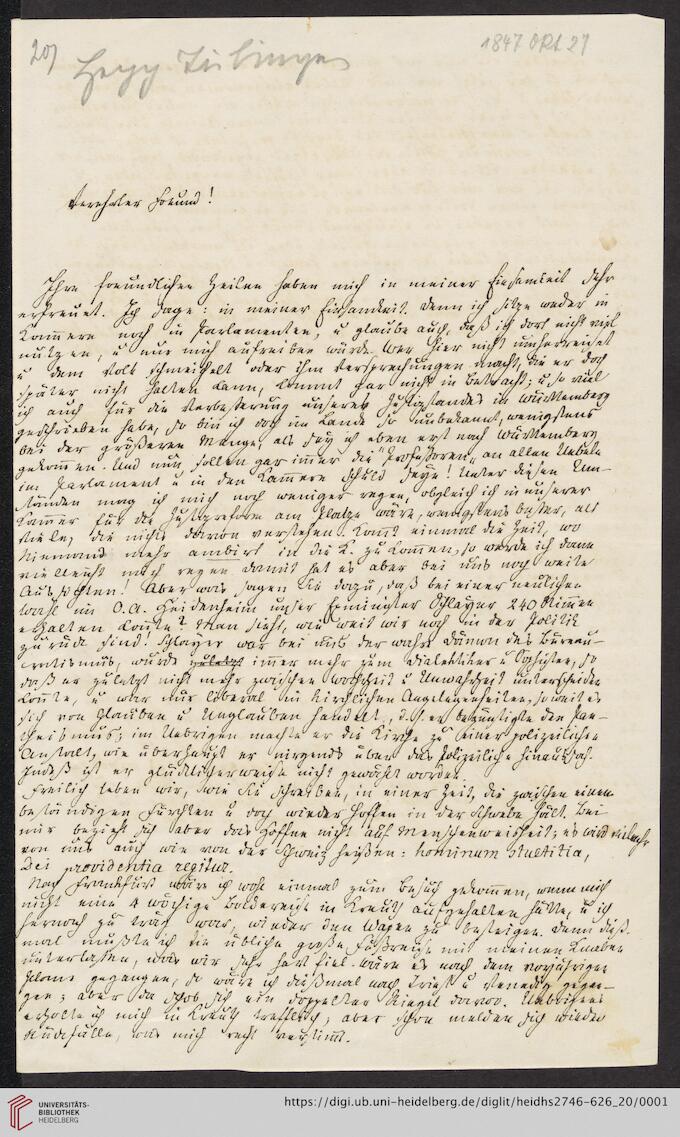 20)
1847 Okt 27
Hepp Tübingen
Verehrter Freund!
Ihre freundlichen Zeilen haben mich in meiner Einsamkeit sehr
erfreuet. Ich sage: in meiner Einsamkeit. Denn ich sitze weder in
Kammern noch in Parlamenten, u glaube auch, daß ich dort nicht viel
nutzen, u nur mich aufreiben würde. Wer hier nicht
u dem Volk schmeichelt oder ihm Versprechungen macht, die er doch
später nicht halten kann, kommt gar nicht in Betracht; u so viel
ich auch für die Verbesserung unseres Justizstandes in Württemberg
geschrieben habe, so bin ich doch im Lande so unbekannt, wenigstens
bei der größeren Menge, als sey ich eben erst nach Württemberg
gekommen. Und nun sollen gar immer die "Professoren" an allen Uebeln
im Parlament u in den Kammern Schuld seyn! Unter diesen Um-
ständen mag ich mich noch weniger regen, obgleich ich in unserer
Kammer für die Justizreform am Platze wäre, wenigstens besser, als
Viele, die nichts davon verstehen. Kommt einmal die Zeit, wo
Niemand mehr ambirt in die K. zu kommen, so werde ich dann
vielleicht mich regen damit hat es aber bei uns noch weite
Aussichten! Aber was sagen Sie dazu, daß bei einer neulichen
Wahl im O.A. Heidenheim unser Exminister Schlayer 240 Stimmen
erhalten konnte? Man sieht, wie weit wir noch in der Politik
zurück sind! Schlayer war bei uns der wahre Dämon des Bureau-
cratismus, wurde zuletzt immer mehr zum Dialektiker u Sophisten, so
daß er zuletzt nicht mehr zwischen Wahrheit u Unwahrheit unterscheiden
konnte, u war nur liberal in kirchlichen Angelegenheiten, so weit es
sich von Glauben u Unglauben handelt, d.h. er begünstigte den Pan-
theismus; im Uebrigen machte er die Kirche zu einer polizeilichen
Anstalt, wie überhaupt er nirgends über das Polizeiliche hinaussah.
Indeß ist er glücklicherweise nicht gewählt worden.
Freilich leben wir, wie Sie schreiben, in einer Zeit, die zwischen einem
beständigen Fürchten u doch wieder Hoffen in der Schwebe hält. Bei
mir bezieht sich aber das Hoffen nicht auf Menschenweisheit; es wird vielmehr
von uns auch wie von der Schweiz heißen: hominum stultitia,
Dei providentia regitur.
Nach Frankfurt wäre ich wohl einmal zum Besuch gekommen, wenn mich
nicht eine 4 wöchige Badereise in Kreuth aufgehalten hätte, u ich
hernach zu träg war, wieder den Wagen zu besteigen. Denn dieß-
mal mußte ich die übliche große Fußreise mit meinen Knaben
unterlassen, was mir sehr hart fiel. Wäre es nach dem vorjährigen
Plane gegangen, so wäre ich dießmal nach Triest u Venedig gegan-
gen; aber da schob sich ein doppelter Riegel davor. Uebrigens
erholte ich mich in Kreuth trefflich; aber schon melden sich wieder
Rückfälle, was mich recht verstimmt.
UNIVERSITÄTS-
BIBLIOTHEK
HEIDELBERG
https://digi.ub.uni-heidelberg.de/diglit/heidhs2746-626_20/0001